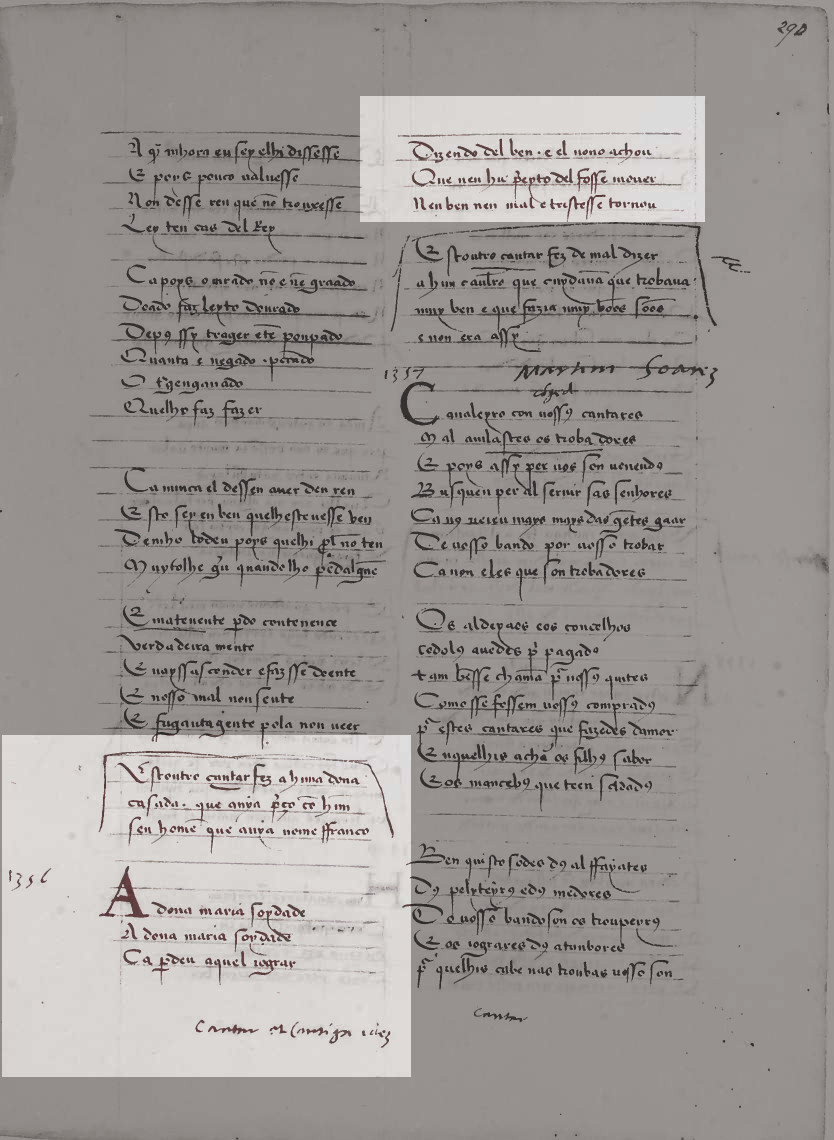 290
A q̄ mhora eu sey elhi dissesse
E poys pouco valuesse
Non desse ren que nō trouxesse
Ley ten cas del Rey
Ca poys omrrado nō e nē graado
Doado faz leyto dourado
Depus ssy trager etē poupado
Quanta e negado
O enganado
Quelho faz fazer
Ca nunca el dessen auer den ren
Esto sey en ben quelhesteuesse ben
poys quelhi nō ten
Muytolhe quandolho
E mateuente pdo contenence
verdadeira mente
E vaysse asconder efazsse doente
E nosso mal non sente
E fugaantagente pola non veer
Estoutro cantar fez a hunadona
casada. que auya pço cō hūu
seu homē que auya nome ffranco
1356
A dona maria soydade
A dona maria soydade
Ca pdeu aquel iograr
Cantar et
Dizendo del ben. e el nono achou
Que nen hū pᵉyto del fosse mouer
Nen ben nen mal e tristesse tornou
Estoutro cantar fez de mal dizer
a hun caualro que cuydaua que trobaua
muy ben e que fazia muy bōos sōos
e non era assy
1357
Martim Soarez
Caualeyro con uossꝯ cantares
Mal auilastes os trobadores
E poys assy per uos son uencudꝯ
Busquen per al seruir sas senhores
Ca uꝯ ueieu mays mays das gētes gaar
De uosso bando por uosso trobar
Ca non eles que son trobadores
Os aldeyaos eos concelhos
todolꝯ auedes pʳ pagadꝯ
tam bēsse chamā pʳ uossꝯ quites
Comosse fossem uossꝯ compradꝯ
pʳ estes cantares que fazedes damor
Enquelhis achā os filhꝯ sabor
Eos mancebꝯ que teen soldadꝯ
Ben quisto sodes dꝯ alffayates
Dꝯ peliteyrꝯ edꝯ medores
De uosso bando son os troupeyrꝯ
E os iograres dꝯ atunbores
pʳ quelhis cabe nas troubas uosso son
Cantar